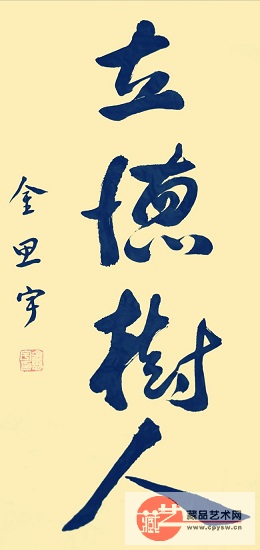 立德樹人
金思宇
藏艺
藏品艺术网
www.cpysw.cn